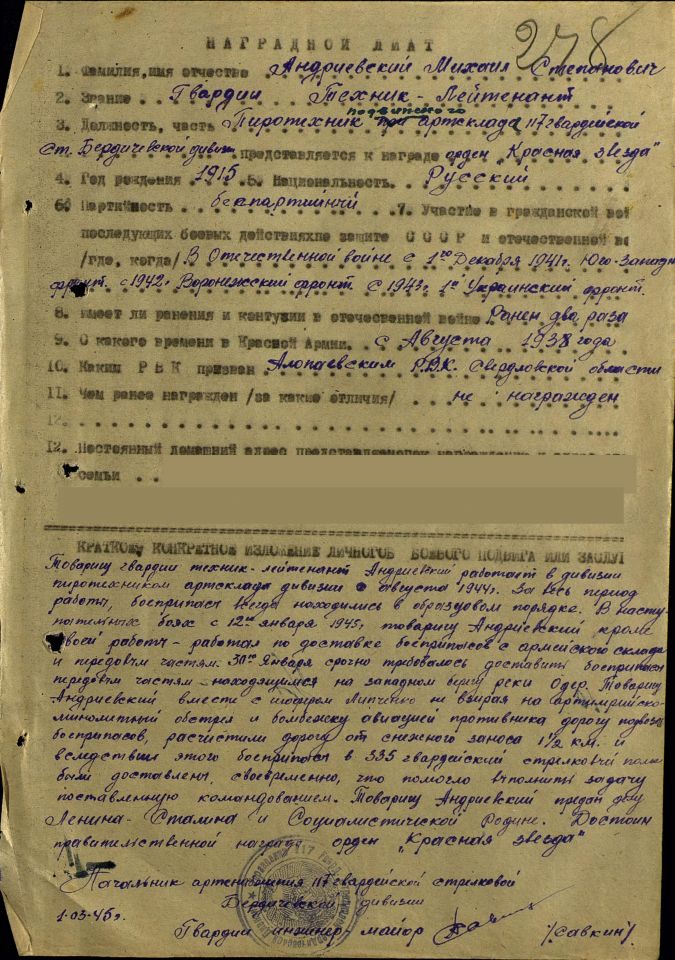 278
НАГРАДНОЙ ЛИАТ
1. Фамилия,имя отчество Андриевский Михаил Степанович
2. Звание Гвардии Техник-Лейтенант
подвижного
3. Должность, часть Пиротехник артсклада 117 гвардейской
ст. Бердичевской дивиз. представляется к награде орден „Красная звезда"
4. Год рождения 1915 5. Национальность Русский
6. Партийность беспартийный 7. Участие в гражданской вой
последующих боевых действияхпо защите СССР и отечественной во
/где, когда/ В Отечественной войне с 1го Декабря 1941г. Юго-Западн
фронт. с 1942г. Воронежский фронт. С 1943г. 1й Украинский фронт.
8. Имеет ли ранения и контузии в отечественной войне Ранен два раза
9. О какого времени в Красной Армии. с Августа 1938 года
10. Каким РВК призван Алопаевским Р.В.К. Свердловской области
11. Чем ранее награжден /за какие отличия/ не награжден
12.
12. Постоянный домашний адрес
семьи
КРАТКОЕ КОНКРЕТНОЕ ИЗЛОЖЕНИЕ ЛИЧНОГОБ БОЕВОГО ПОДВИГА ИЛИ ЗАСЛУГ
Товарищ гвардии техник-лейтенант Андриевский работает в дивизии
пиротехником артсклада дивизии с августа 1944г. За весь период
работы, боеприпасы всегда находились в образцовом порядке. В насту
пательных боях с 12го января 1945г. товарищ Андриевский кроме
своей работы - работал по доставке боеприпасов с армейского склада
и передовым частям. 30го Января срочно требовалось доставить боеприпасы
передовым частям находящимся на западном берегу реки Одер. Товарищ
Андриевский вместе с шофером Липченко не взирая на артиллерийско-
минометный обстрел и бомбежку авиацией противника дорогу подвоза
боеприпасов, расчистили дорогу от снежного заноса 1½ км. и
вследствии этого боеприпасы в 335 гвардейский стрелковый полк
были доставлены, своевременно, что помогло выполнить задачу
поставленную командованием. Товарищ Андриевский предан делу
Ленина-Сталина и Социалистической Родине. Достоин
правительственной награды орден „Красная звезда"
Начальник артснабжения 117 гвардейской стрелковой
Бердичевской дивизии
1.03.45г.
Гвардии инженер-майор /Савкин/